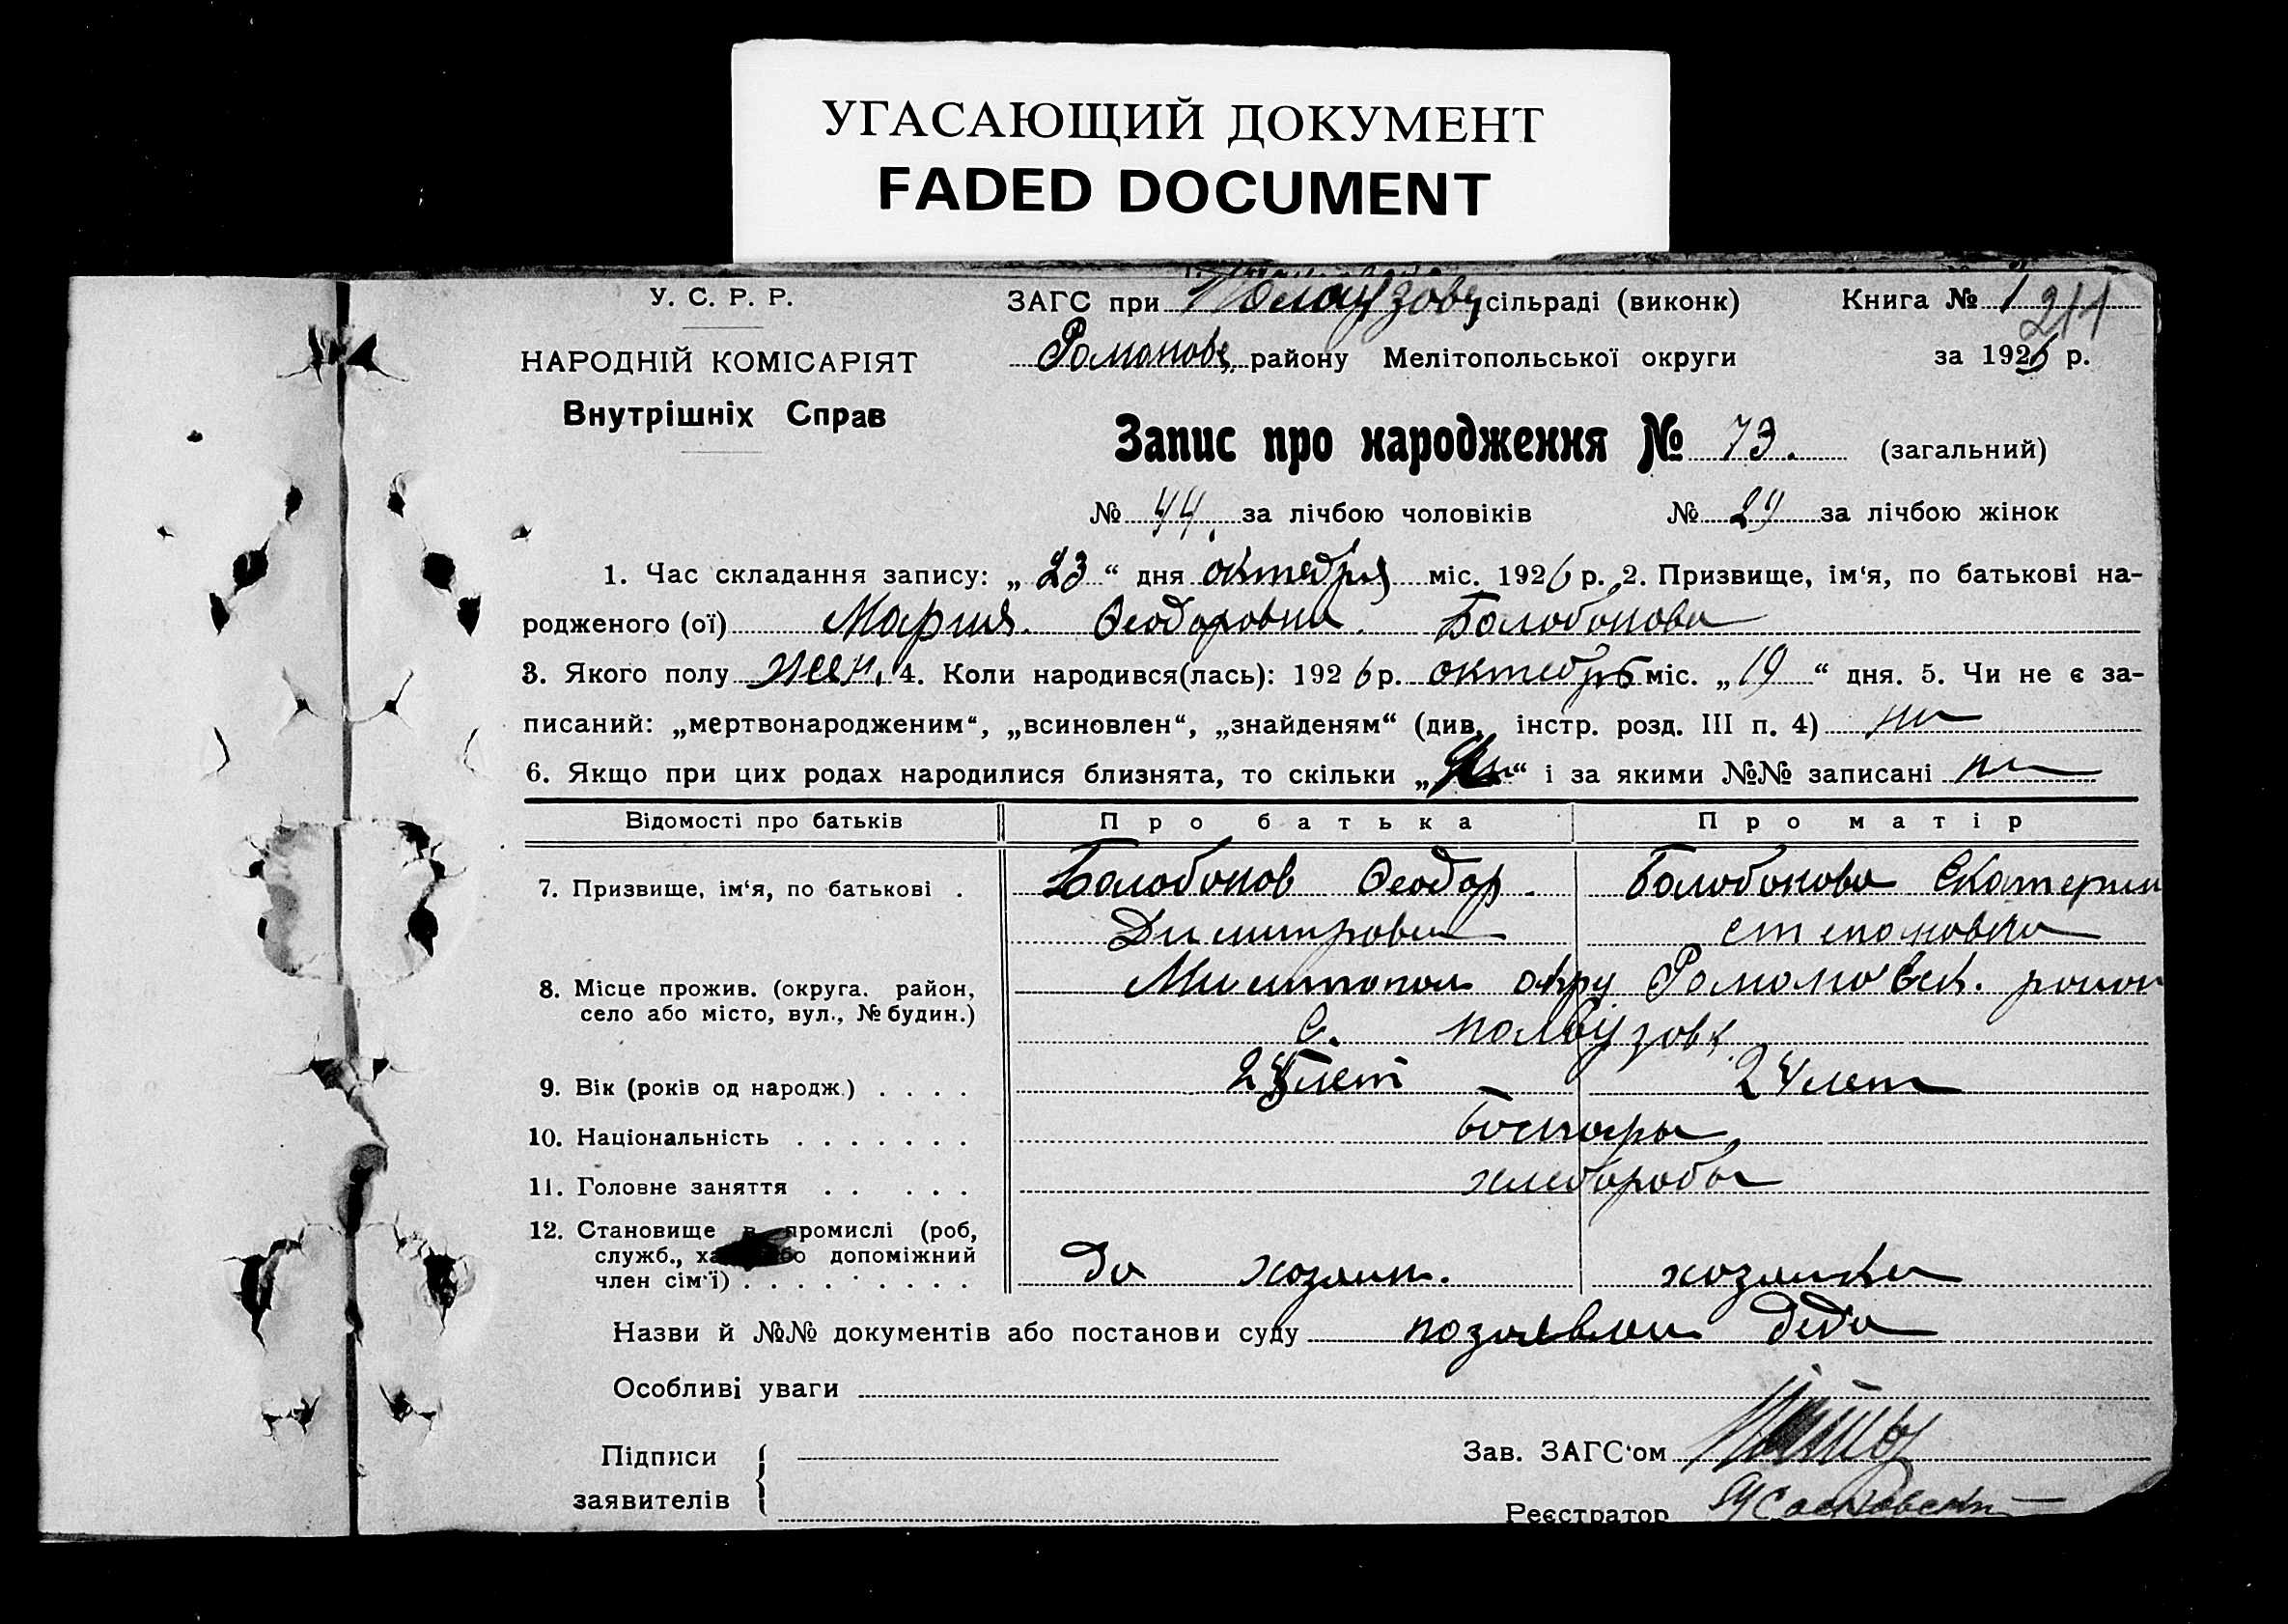 УГАСАЮЩИЙ ДОКУМЕНТ
FADED DOCUMENT
У. С. Р. Р.
НАРОДНІЙ КОМІСАРІЯТ
Внутрішніх Справ
ЗАГС при сільраді (виконк) Книга № 1
211
Романовс. району Мелітопольської округи за 1926 р.
Запис про народження № 73. (загальний)
№ 44. за лічбою чоловіків № 29 за лічбою жінок
1. Час складання запису: „ 23 “ дня октября міс. 1926 р. 2. Призвище, ім‘я, по батькові на-
родженого (ої) Мария. Феодоровна. Балобонова
3. Якого полу жен. 4. Коли народився(лась): 1926 р. октебрь міс. „ 19 “ дня. 5. Чи не є за-
писаний: „мертвонародженим“, „всиновлен“, „знайденям“ (див. інстр. розд. III п. 4)
6. Якщо при цих родах народилися близнята, то скільки „ “ і за якими №№ записані
Відомості про батьків Про батька Про матір
7. Призвище, ім‘я, по батькові . Балобонов Феодор. Балобонова Екатерин
Димитрови степановна
8. Місце прожив. (округа. район, село або місто, вул., № будин.) окру Романовск. район
с.
9. Вік (років од народж.) . . . . лет 24 лет
10. Національність . . . . . . . болгары
11. Головне заняття . . . . . хлеборобы
12. Становище в промислі (роб,
служб., або допоміжний
член сім‘ї) . . . . . . . . . хозяин. хозяйка
Назви й №№ документів або постанови суду деда
Особливі уваги
Підписи
заявителів
Зав. ЗАГС‘ом
Реєстратор